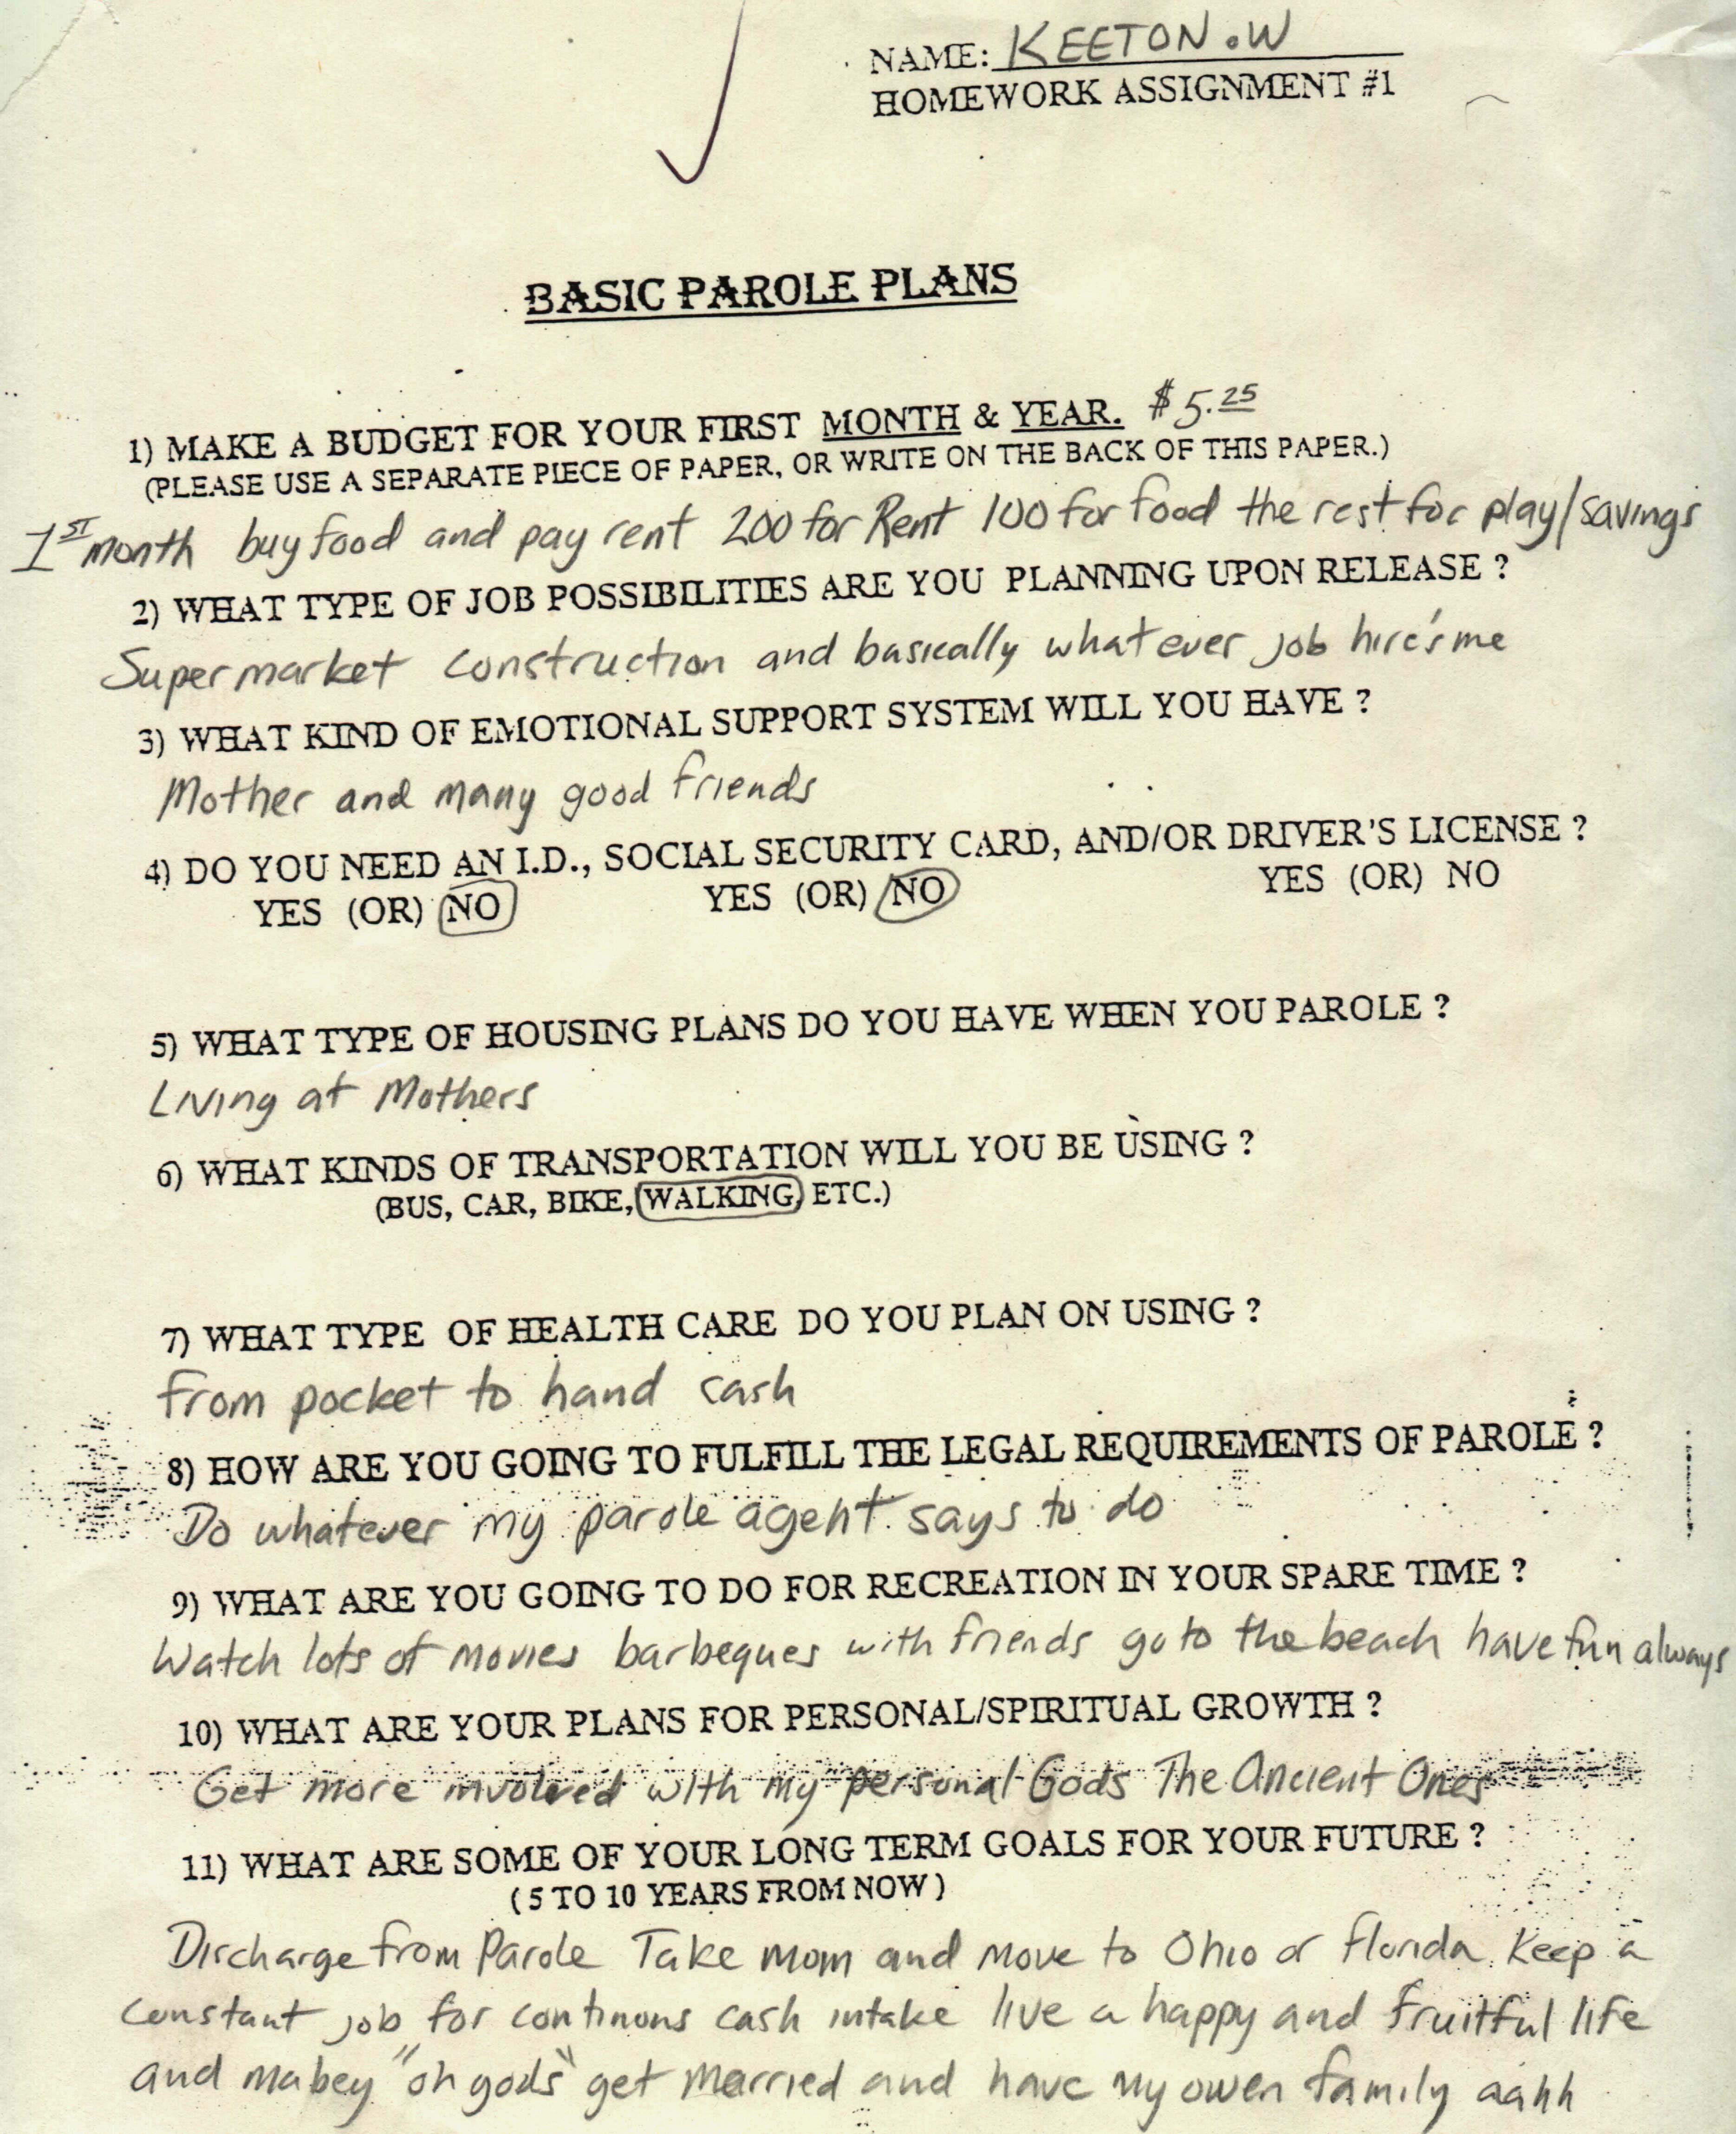 NAME: KEETON.W
HOMEWORK ASSIGNMENT #1
BASIC PAROLE PLANS
1) MAKE A BUDGET FOR YOUR FIRST MONTH & YEAR. $5.25
(PLEASE USE A SEPARATE PIECE OF PAPER, OR WRITE ON THE BACK OF THIS PAPER.)
1ST month buy food and pay rent 200 for Rent 100 for food the rest for play/savings
2) WHAT TYPE OF JOB POSSIBILITIES ARE YOU PLANNING UPON RELEASE ?
Supermarket construction and basically whatever job hire's me
3) WHAT KIND OF EMOTIONAL SUPPORT SYSTEM WILL YOU HAVE ?
Mother and many good friends
4) DO YOU NEED AN I.D., SOCIAL SECURITY CARD, AND/OR DRIVER'S LICENSE ?
YES (OR) NO YES (OR) NO YES (OR) NO
5) WHAT TYPE OF HOUSING PLANS DO YOU HAVE WHEN YOU PAROLE ?
Living at Mothers
6) WHAT KINDS OF TRANSPORTATION WILL YOU BE USING ?
(BUS, CAR, BIKE, WALKING, ETC.)
7) WHAT TYPE OF HEALTH CARE DO YOU PLAN ON USING ?
from pocket to hand cash
8) HOW ARE YOU GOING TO FULFILL THE LEGAL REQUIREMENTS OF PAROLE ?
Do whatever my parole agent says to do
9) WHAT ARE YOU GOING TO DO FOR RECREATION IN YOUR SPARE TIME ?
Watch lots of movies barbeques with friends go to the beach have fun always
10) WHAT ARE YOUR PLANS FOR PERSONAL/SPIRITUAL GROWTH ?
Get more involved with my personal Gods The Ancient Ones
11) WHAT ARE SOME OF YOUR LONG TERM GOALS FOR YOUR FUTURE ?
(5 TO 10 YEARS FROM NOW)
Discharge from Parole Take mom and move to Ohio or Florida. Keep a
constant job for continous cash intake live a happy and fruitful life
and mabey "oh gods" get married and have my owen family aahh